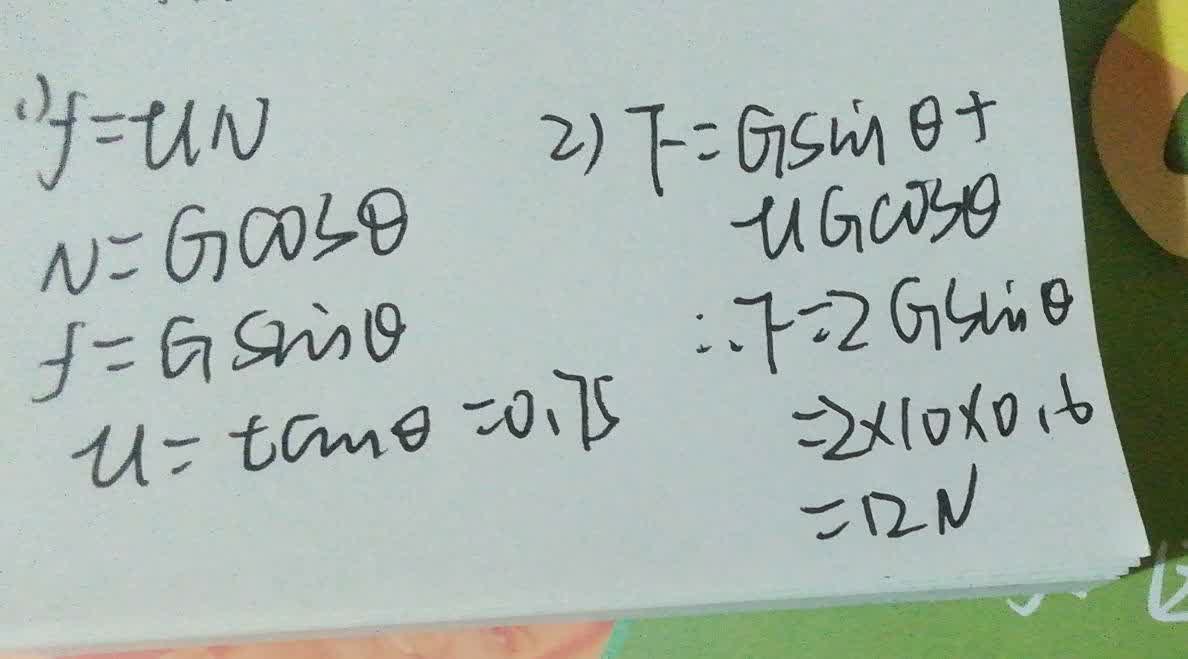 1) f=μN
N=Gcosθ
f=Gsinθ
μ=tanθ=0.75
2) F=Gsinθ+
μGcosθ
∴F=2Gsinθ
=2×10×0.6
=12N